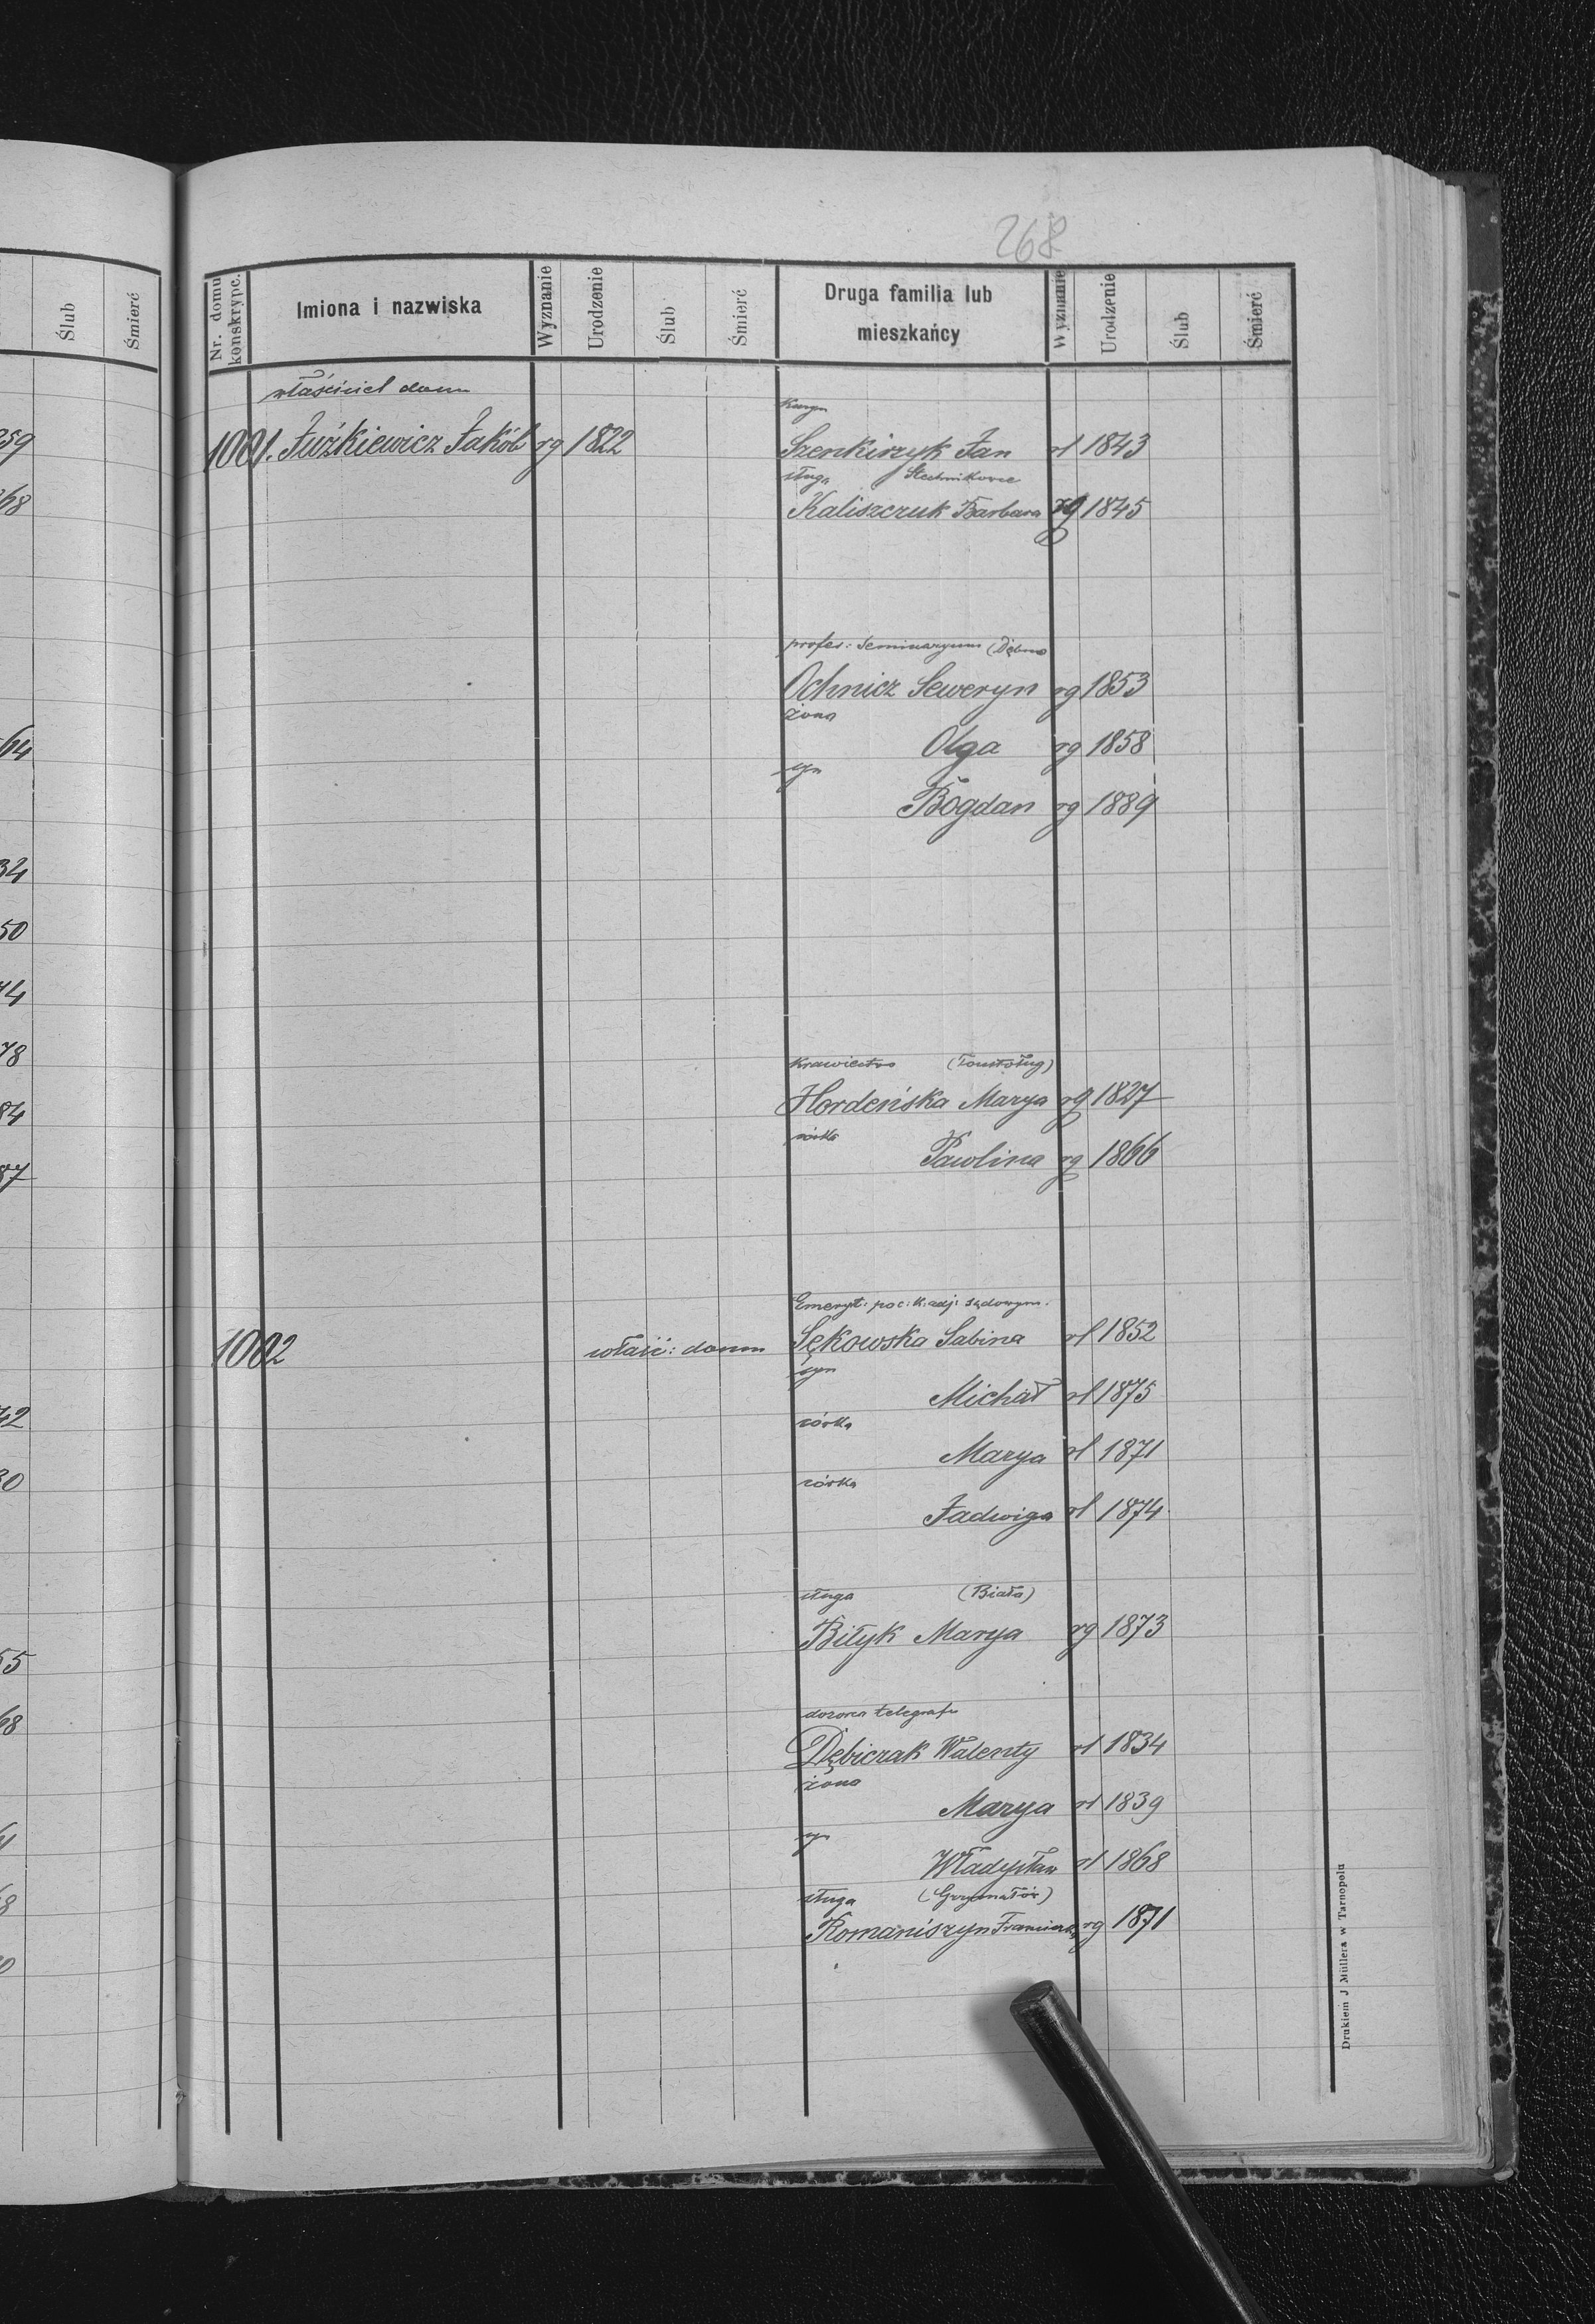 59
68
64
34
50
74
78
84
87
42
30
55
68
Ślub
Śmierć
268
Nr. domu konskrypc.
Imiona i nazwiska
Wyznanie
Urodzenie
Ślub
Śmierć
Druga familia lub mieszkańcy
Wyznanie
Urodzenie
Ślub
Śmierć
właściciel domu
1001. Juźkiewicz Jakób rg 1822
Szenkirzyk Jan rl 1843
sługa
Kaliszczuk Barbara rg 1845
profes: Seminaryum (Dębno
Ochnicz Seweryn rg 1853
żona
Olga rg 1858
syn
Bogdan rg 1889
krawiectwo (Toustoług)
Hordeńska Marya rg 1827
córka
Pawlina rg 1866
Emeryt: po c: k: adj: sądowym.
1002 właść: domu Sękowska Sabina rl 1852
syn
Michał rl 1875
córka
Marya rl 1871
córka
Jadwiga rl 1874
sługa (Biała)
Biłyk Marya rg 1873
dozorca telegrafu
Dębiczak Walenty rl 1834
żona
Marya rl 1839
syn
Władysław rl 1868
sługa
Romaniszyn rg 1871
Drukiem J Müllera w Tarnopolu